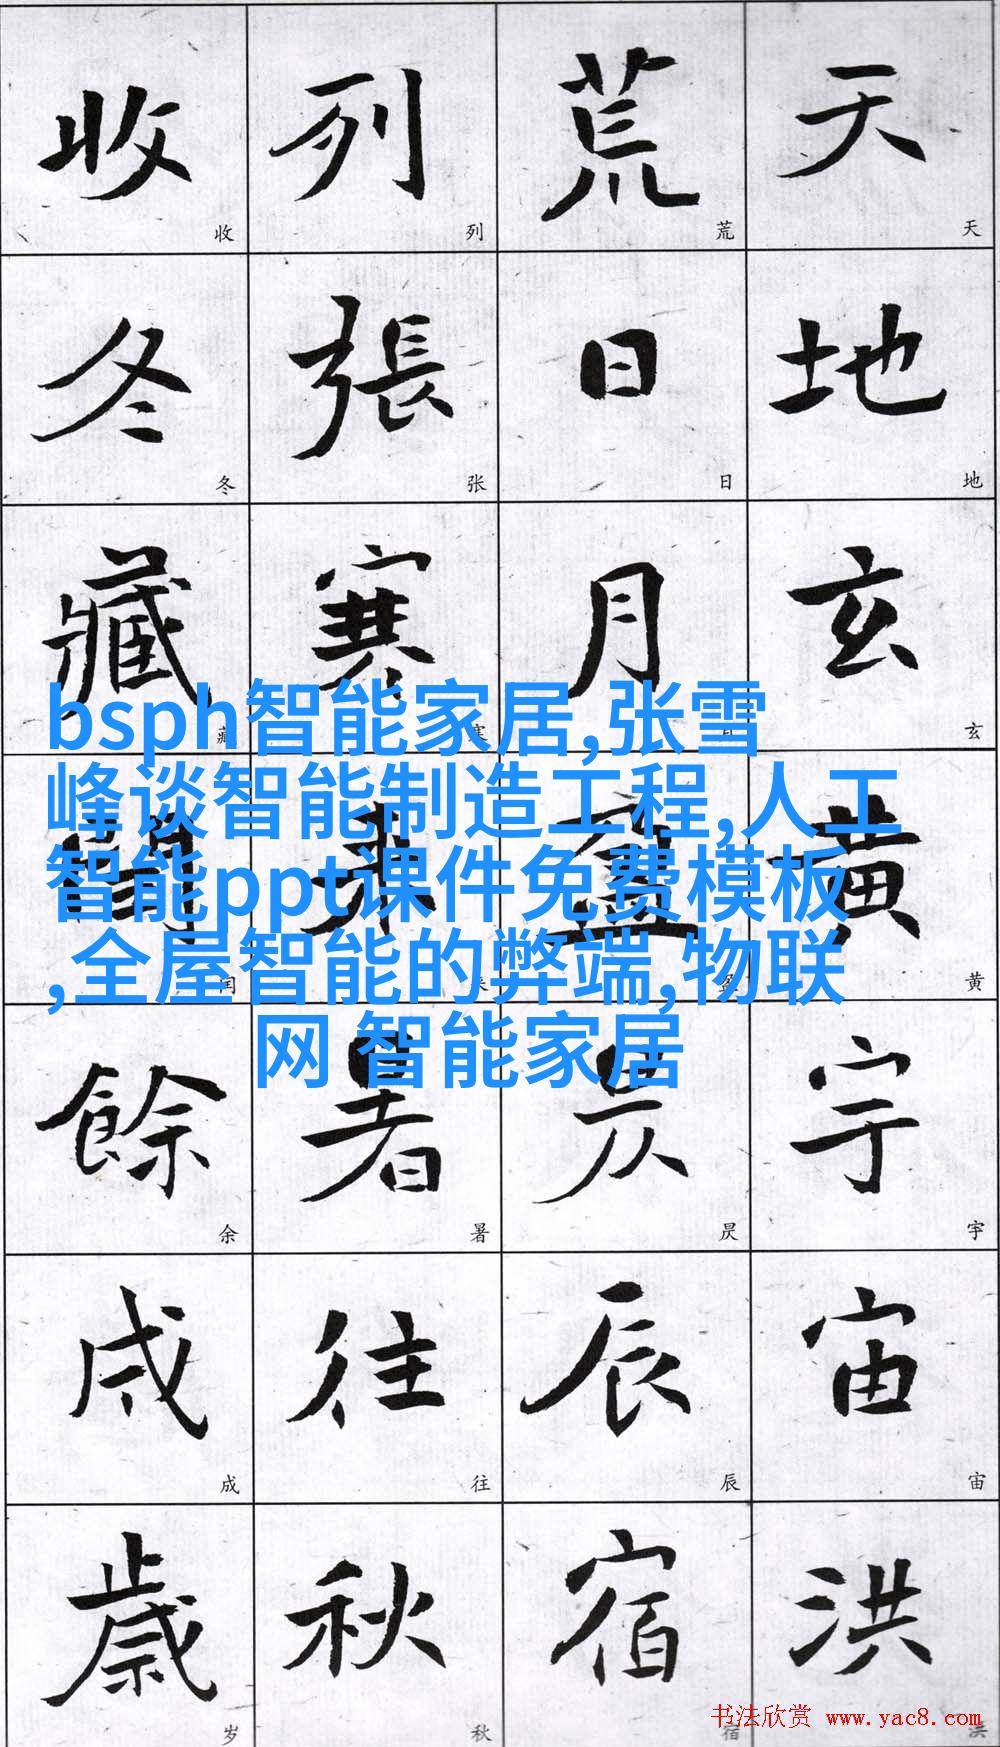 天地玄黃宇宙洪
天地玄黄宇宙洪
荒日月盈昃辰宿
荒日月盈昃辰宿
列張寒来暑往秋
列张寒来暑往秋
收冬藏閏餘成歲
收冬藏闰余成岁
bsph智能家居,张雪
峰谈智能制造工程,人工
智能ppt课件免费模板
,全屋智能的弊端,物联
网 智能家居
书法欣赏 www.yac8.com